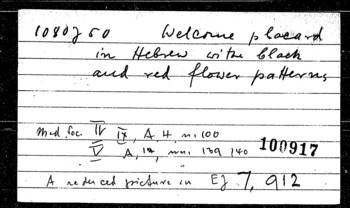 1080750 Welcome placard
in Hebrew with black
and red flower patterns
Med. Soc. IV IX, A 4, n. 100
V A, 12, nn. 139 140 100917
A reduced picture in EJ 7, 912